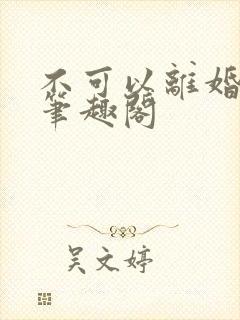 不可以離婚
筆趣閣
吴文婷